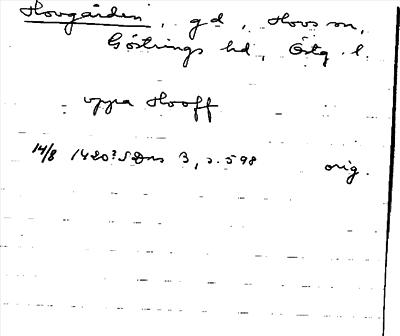 Hovgården, gd, Hovs sn,
Göstrings hd, Östg. l.
uppa Hooff
14/8 1420? SDns 3, s. 598 orig.